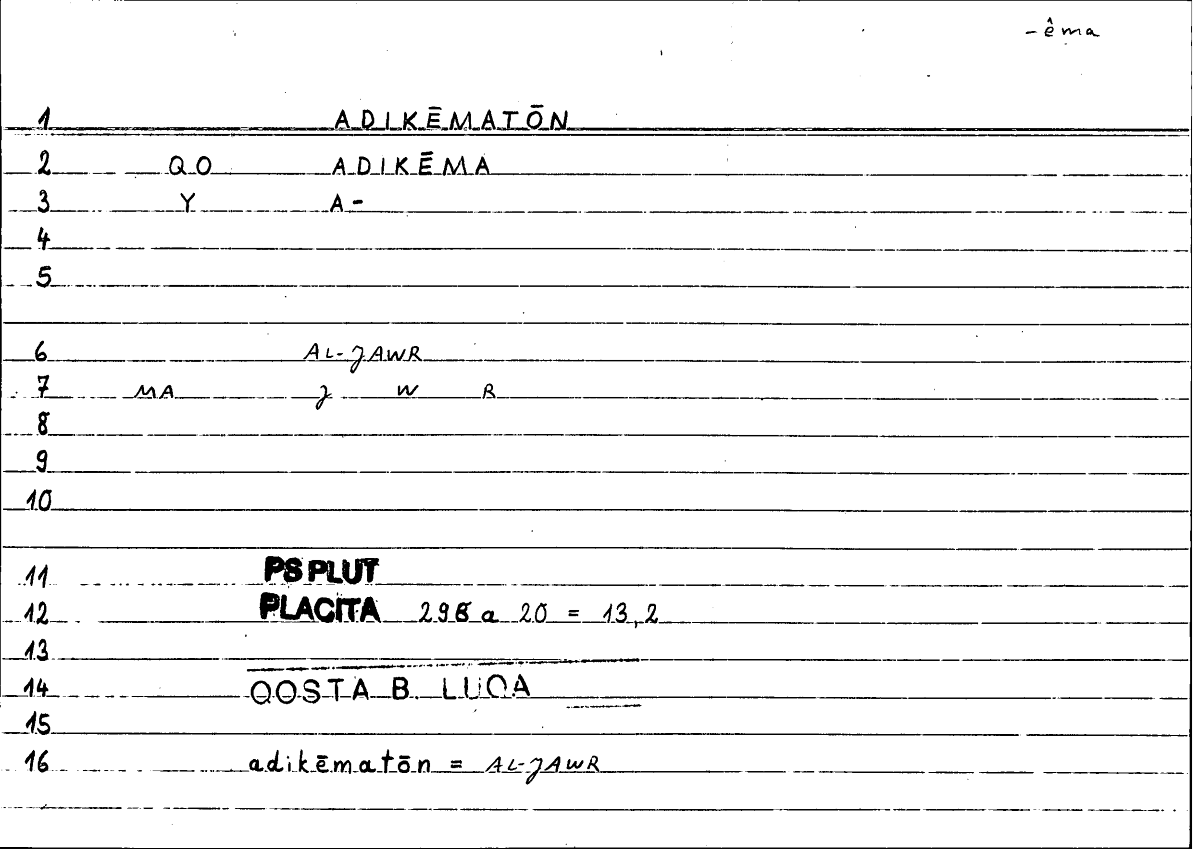 -êma
1 ADIKĒMATŌN
2 QO ADIKĒMA
3 Y A-
4
5
6 AL-JAWR
7 MA J W R
8
9
10
11 PS PLUT
12 PLACITA 296 a 20 = 13,2
13
14 QOSTA B. LUQA
15
16 adikēmatōn = AL-JAWR